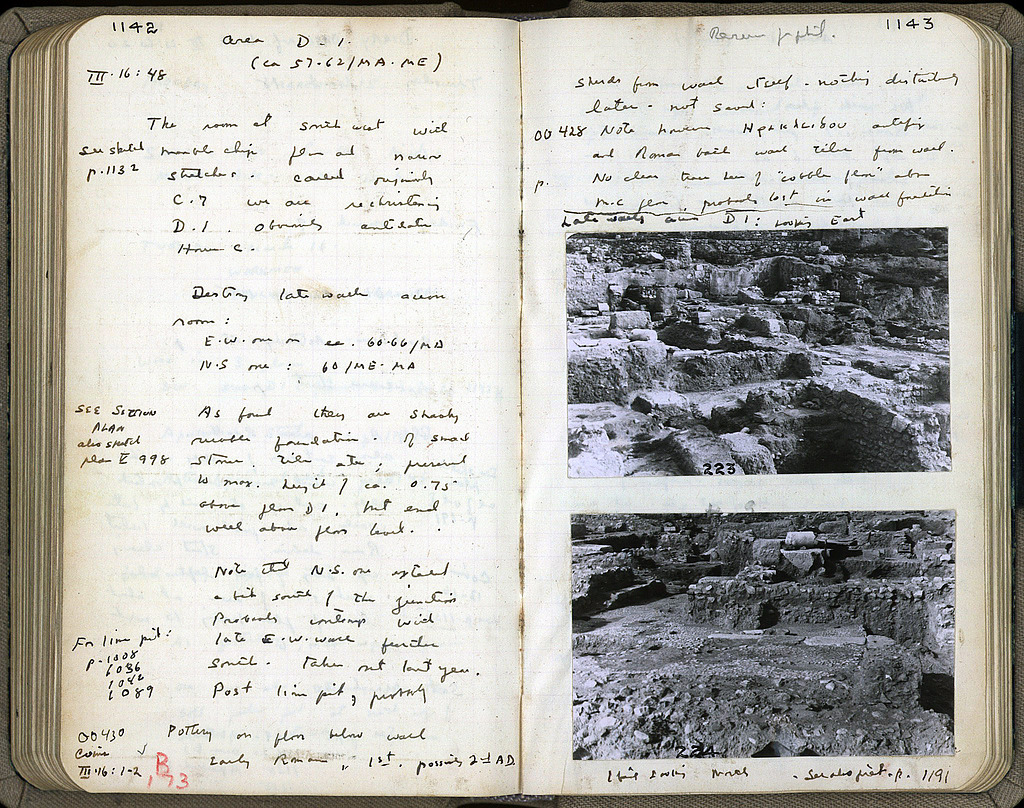 1142
Area D.1.
(ca 57-62/MA-ME)
III.16:48
The room at south west with
See sketch
p.1132
marble chip floor and narrow
stretches. called originally
C.7 we are rechristening
D.1. obviously antedates
House C.
Destroy late walls across
room:
E.W. one on ca. 60-66/MD
N.S one : 60/ME-MA
SEE SECTION
PLAN
also sketch
plan E 998
As found they are shabby
rubble foundation. Of small
stones, tiles etc, preserved
to max. height of ca. 0.75
above floor D1, but end
well above floor level.
Note that N.S. one extended
a bit south of the junction
Probably contemp with
late E.W. wall further
south. taken out last year.
Post lime pit, probably
For lime pit:
p.1008
1036
1089
OO430
Coins
III.16:1-2
B
Pottery on floor below wall
Early Roman, 1st, possibly 2nd AD
1143
sherds from wall itself - nothing disturbing
later - not saved:
OO 428 Note however Ηρακλειδου
and Roman bath wall tiles from wall.
p.
No clear trace here of "cobble floor" above
m.c floor, probably lost in wall foundation
Late walls across D1: looking East
223
224
looking North
p. 1191